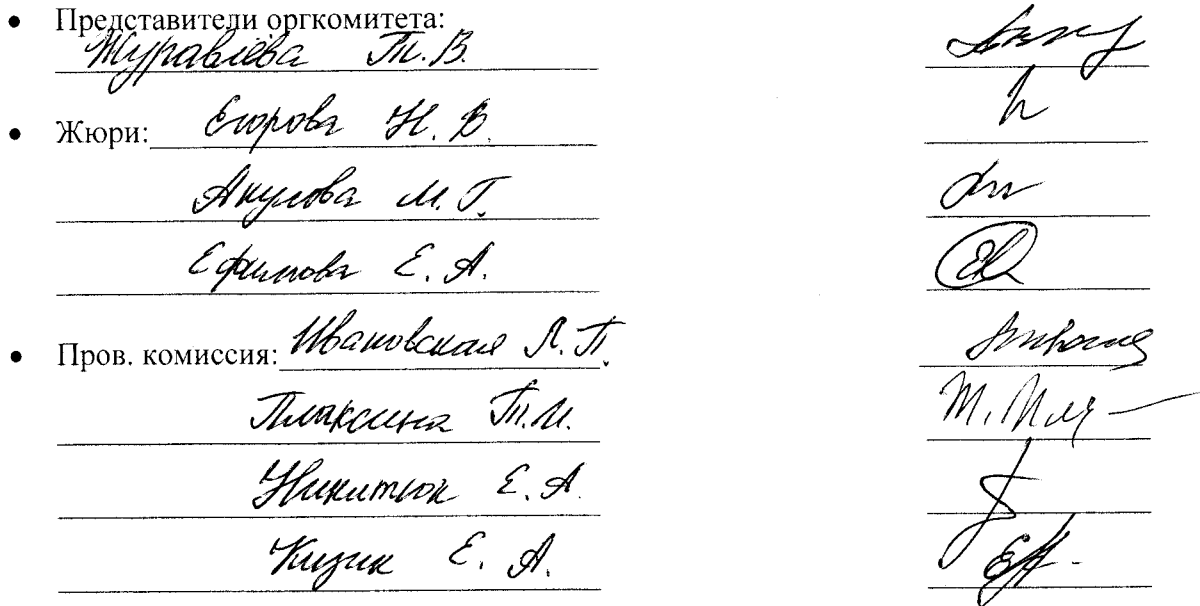 • Представители оргкомитета:
Журавлева Т. В.
• Жюри: Егорова Н. В.
Акулова М. Г.
Ефимова Е. А.
• Пров. комиссия: Ивановская Л. П.
Плаксина Т. И.
Никитюк Е. А.
Кизик Е. А.